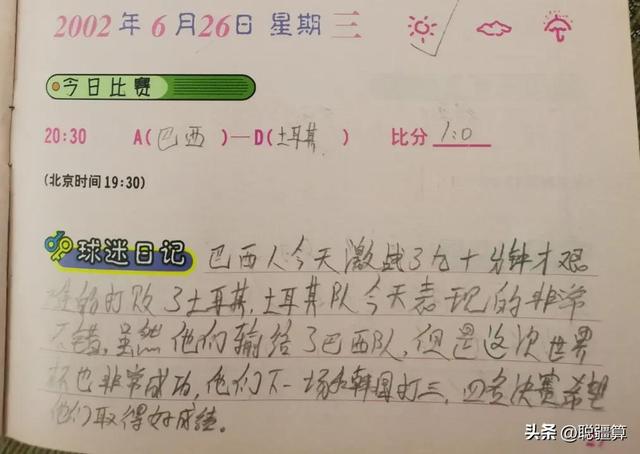 2002年6月26日 星期三
今日比赛
20:30 A(巴西)—D(土耳其) 比分 1:0
(北京时间19:30)
球迷日记 巴西人今天激战了九十分钟才艰
难的打败了土耳其,土耳其队今天表现的非常
不错,虽然他们输给了巴西队,但是这次世界
杯也非常成功,他们下一场和韩国打三、四名决赛希望
他们取得好成绩。
头条 @聪疆算
27